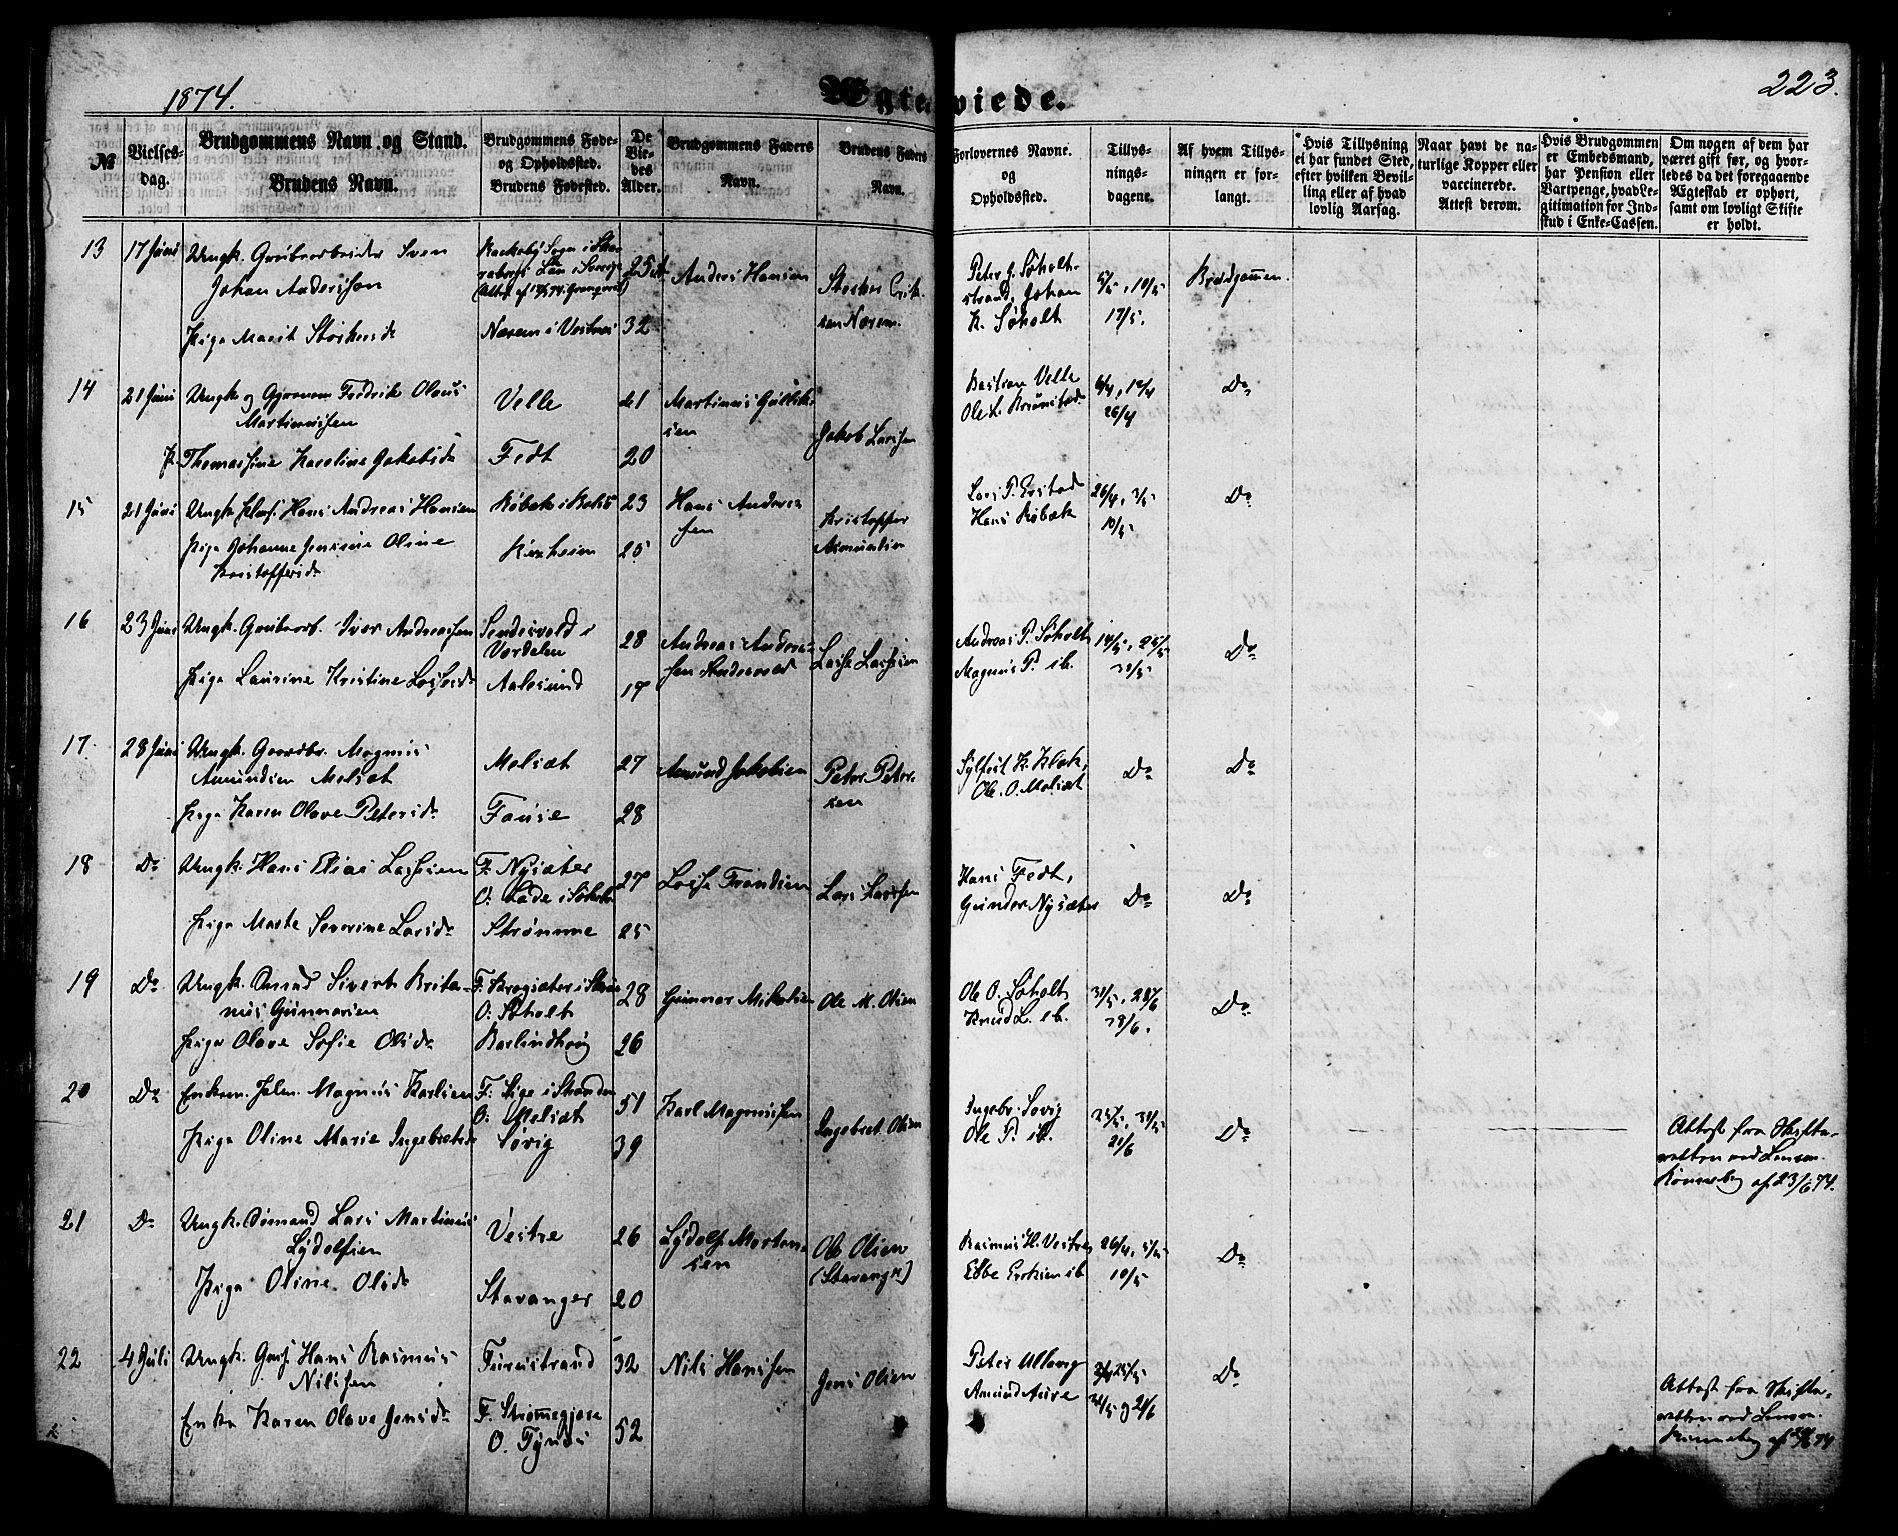 1874.
Ægteviede.
223.
№
Vielses-
dag.
Brudgommens Navn og Stand.
Brudens Navn.
Brudgommens Føde-
og Opholdssted.
Brudens Fødested.
De
Vie-
des
Alder.
Brudgommens Faders
Navn.
Brudens Faders
Navn.
Forlovernes Navne.
og
Opholdssted.
Tillys-
nings-
dagene.
Af hvem Tillys-
ningen er for-
langt.
Hvis Tillysning
ei har fundet Sted,
efter hvilken Bevil-
ling eller af hvad
lovlig Aarsag.
Naar havt de na-
turlige Kopper eller
vaccinerede.
Attest derom.
Hvis Brudgommen
er Embedsmand,
har Pension eller
Vartpenge, hvad Le-
gitimation for Ind-
skud i Enke-Cassen.
Om nogen af dem har
været gift før, og hvor-
ledes da det foregaaende
Ægteskab er ophørt,
samt om lovligt Skifte
er holdt.
13 17 Juni Ungk. Grubearbeider Sven
Johan Andersson
Pige Marit Storkersd.
Sogn i
Län i Sverige
Nærem i Vestnes
25
32
Anders Hansen
Storker Erik-
sen Nærem.
Peter J. Søholt-
strand, Johan
K. Søholt
3/5, 10/5
17/5.
Brudgommen
14 21 Juni Ungk. og Gjørtnem Fredrik Olaus
Martinussen
P. Thomassine Karoline Jakobsd.
Velle
Fedt
21
20
Martinus Gullik-
sen
Jakob Larssen
Bastian Velle
Ole L.
6/4, 12/4
26/4
Do
15 21 Juni Ungk. Hans Andreas Hansen
Pige Johanne Jensine Oline
Kristoffersd.
23
25
Hans Anders-
sen
Kristoffer
Asmundsen
Lars P. Erstad
Hans Røbæk
26/4, 3/5
10/5
Do
16 23 Juni Ungk. Grubearb. Iver Andreassen
Pige Laurine Kristine Lassesd.
i
Værdalen
Aalesund
28
17
Andreas Andre-
sen
Lasse Lassesen
Andreas P. Søholt
Magnus P. ib.
14/5, 25/5
31/5
Do
17. 28 Juni Ungk. Gaardbr. Magnus
Amundsen Melsæt
Pige Karen Olave Petersd.
Melsæt
Fause
27
28
Amund Jakobsen
Peter Peter-
sen
Sylfest K. Klok,
Ole O. Melsæt
Do
Do
18 Do Ungk. Hans Elias Lassesen
Pige Marte Severine Larsd.
F: Nysæter
O: Løde i Søholt
Strømme
27
25
Lasse Trondsen
Lars Larssen
Hans Fedt,
Gunder Nysæter
Do
Do
19 Do Ungk. Sivert Krita-
nus Gunnarsen
Pige Olave Sofie Olsd.
F: i
O: Søholt
28
26
Gunnar Mikelsen
Ole M. Olsen
Ole O. Søholt,
Knud L. ib.
31/5, 21/6
28/6.
Do
20 Do Enkem. Magnus Karlsen
Pige Oline Marie Ingebretsd.
F: i Stranden
O: Melsæt
Løvig
51
39
Karl Magnussen
Ingebret Olsen
Ingebr. Løvig
Ole P. ib.
25/5, 31/5
21/6
Do
Attest fra Skifte-
retten ved Lensm.
Rønneberg af 23/6 74.
21 Do Ungk. Sømand Lars Martinus
Lydolfsen
Pige Oline Olsd.
Vestre
Stavanger
26
20
Lydolf Morten-
sen
Ole Olsen
(Stavanger)
Rasmus H. Vestre
Ebbe Eriksen ib
26/4, 3/5
10/5
Do
22 4 Juli Ungk. Hans Rasmus
Nilssen
Enke Karen Olave Jensd.
Furustrand
F. Strømmegjære
O. Tynæs
32
52
Nils Hanssen
Jens Olsen
Peter Ullavig
Amund Aure
25/5
31/5 & 21/6
Do
Attest fra Skifte-
retten ved Lensm.
Rønneberg af 74